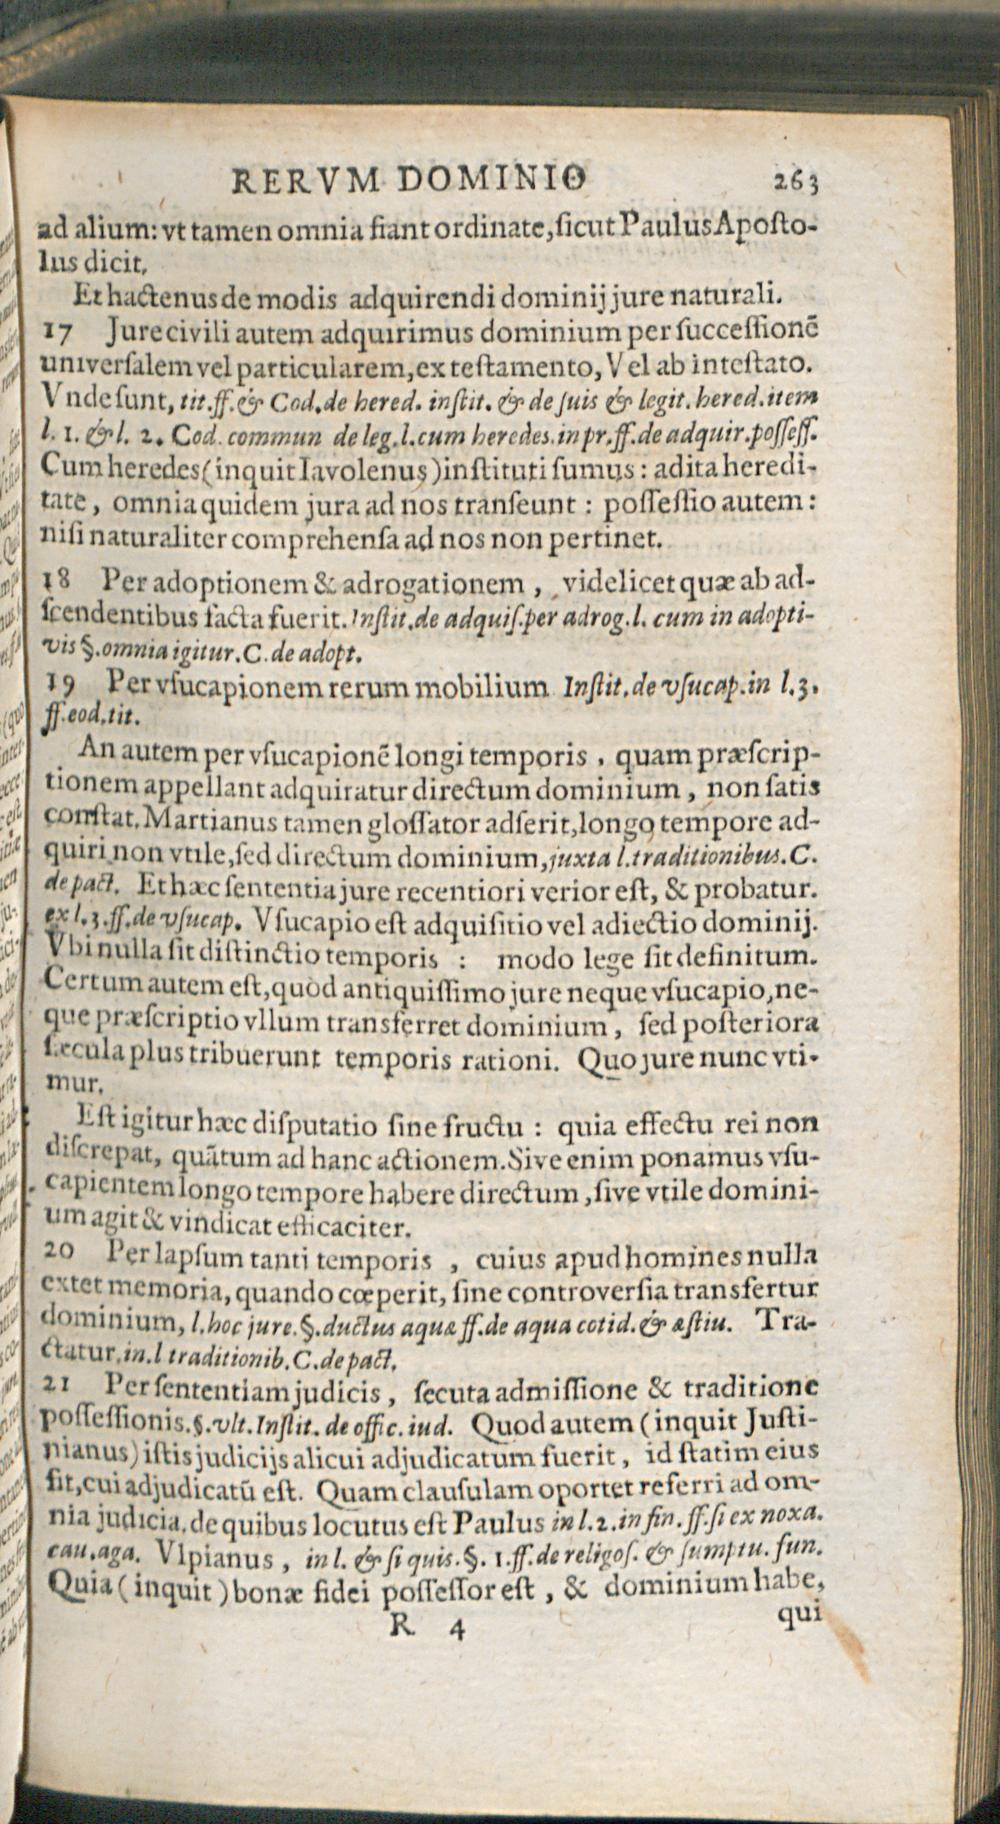 RERVM DOMINIO 263
ad alium: vt tamen omnia fiant ordinate, ſicut Paulus Apoſto-
lus dicit.
Et hactenus de modis adquirendi dominij jure naturali.
17 Jure civili autem adquirimus dominium per ſucceſſionē
univerſalem vel particularem, ex teſtamento, Vel ab inteſtato.
Vnde ſunt, tit. ff. & Cod. de hered. inſtit. & de ſuis & legit. hered. item
l. 1. & l. 2. Cod. commun de leg. l. cum heredes. in pr. ff. de adquir. poſſeſſ.
Cum heredes (inquit Iavolenus) inſtituti ſumus: adita heredi-
tate, omnia quidem jura ad nos tranſeunt: poſſeſſio autem:
niſi naturaliter comprehenſa ad nos non pertinet.
18 Per adoptionem & adrogationem, videlicet quæ ab ad-
ſcendentibus facta fuerit. Inſtit. de adquiſ. per adrog. l. cum in adopti-
vis §. omnia igitur. C. de adopt.
19 Per vſucapionem rerum mobilium Inſtit. de vſucap. in l. 3.
ff. eod. tit.
An autem per vſucapionē longi temporis, quam præſcrip-
tionem appellant adquiratur directum dominium, non ſatis
conſtat. Martianus tamen gloſſator adſerit, longo tempore ad-
quiri non vtile, ſed directum dominium, juxta l. traditionibus. C.
de pact. Et hæc ſententia jure recentiori verior eſt, & probatur.
ex l. 3. ff. de vſucap. Vſucapio eſt adquiſitio vel adiectio dominij.
Vbi nulla ſit diſtinctio temporis : modo lege ſit definitum.
Certum autem eſt, quod antiquiſſimo jure neque vſucapio, ne-
que præſcriptio vllum transferret dominium, ſed poſteriora
ſæcula plus tribuerunt temporis rationi. Quo jure nunc vti-
mur.
Eſt igitur hæc diſputatio ſine fructu : quia effectu rei non
diſcrepat, quātum ad hanc actionem. Sive enim ponamus vſu-
capientem longo tempore habere directum, ſive vtile domini-
um agit & vindicat efficaciter.
20 Per lapſum tanti temporis, cuius apud homines nulla
extet memoria, quando cœperit, ſine controverſia transfertur
dominium, l. hoc jure. §. ductus aquæ ff. de aqua cotid. & æſtiu. Tra-
ctatur. in. l traditionib. C. de pact.
21 Per ſententiam judicis, ſecuta admiſſione & traditione
poſſeſſionis. §. vlt. Inſtit. de offic. iud. Quod autem (inquit Juſti-
nianus) iſtis judicijs alicui adjudicatum fuerit, id ſtatim eius
fit, cui adjudicatū eſt. Quam clauſulam oportet referri ad om-
nia judicia, de quibus locutus eſt Paulus in l. 2. in fin. ff. ſi ex noxa.
cau. aga. Vlpianus, in l. & ſi quis. §. 1. ff. de religoſ. & ſumptu. fun.
Quia (inquit) bonæ fidei poſſeſſor eſt, & dominium habe,
R 4 qui